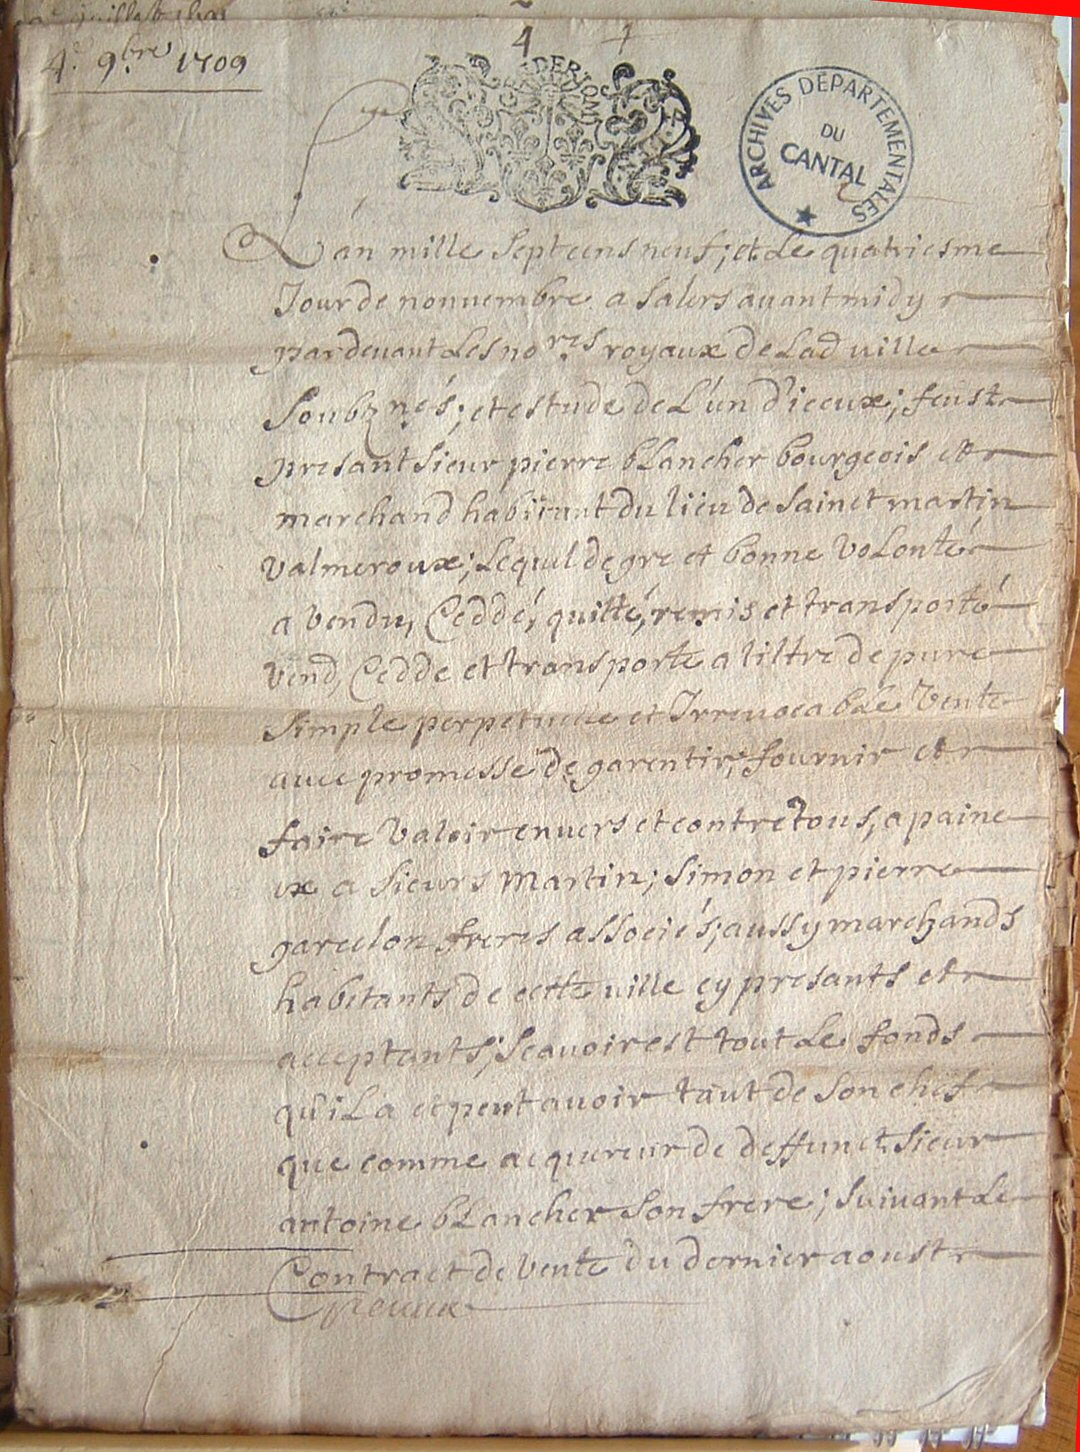 4e 9bre 1709
4
G. DE RIOM
ARCHIVES DEPARTEMENTALES
DU
CANTAL
Lan mille septcens neuf; et le quatriesme
Jour de nouvembre a salers avant midy
pardevant les norres royaux de lad ville
soubznés; et estude de L'un d'iceux; feust
presant sieur pierre blancher bourgeois et
marchand habitant du lieu de sainct martin
valmeroux; Lequel de gre et bonne volonté
a vendu, Ceddé, quitté, remis et transporté
vend, Cedde et transporte a tiltre de pure
simple perpetuelle et Irrevocable vente
avec promesse de garentir, fournir et
faire valoir envers et contre tous, a paine
ex a sieurs martin; simon et pierre
garcelon freres associés; aussy marchands
habitants de cette ville cy presants et
acceptants; scavoir est tout le fonds
qu'il a et peut avoir tant de son chef
que comme acquereur de deffunct sieur
antoine blancher son frere; suivant le
Contract de vente du dernier aoust